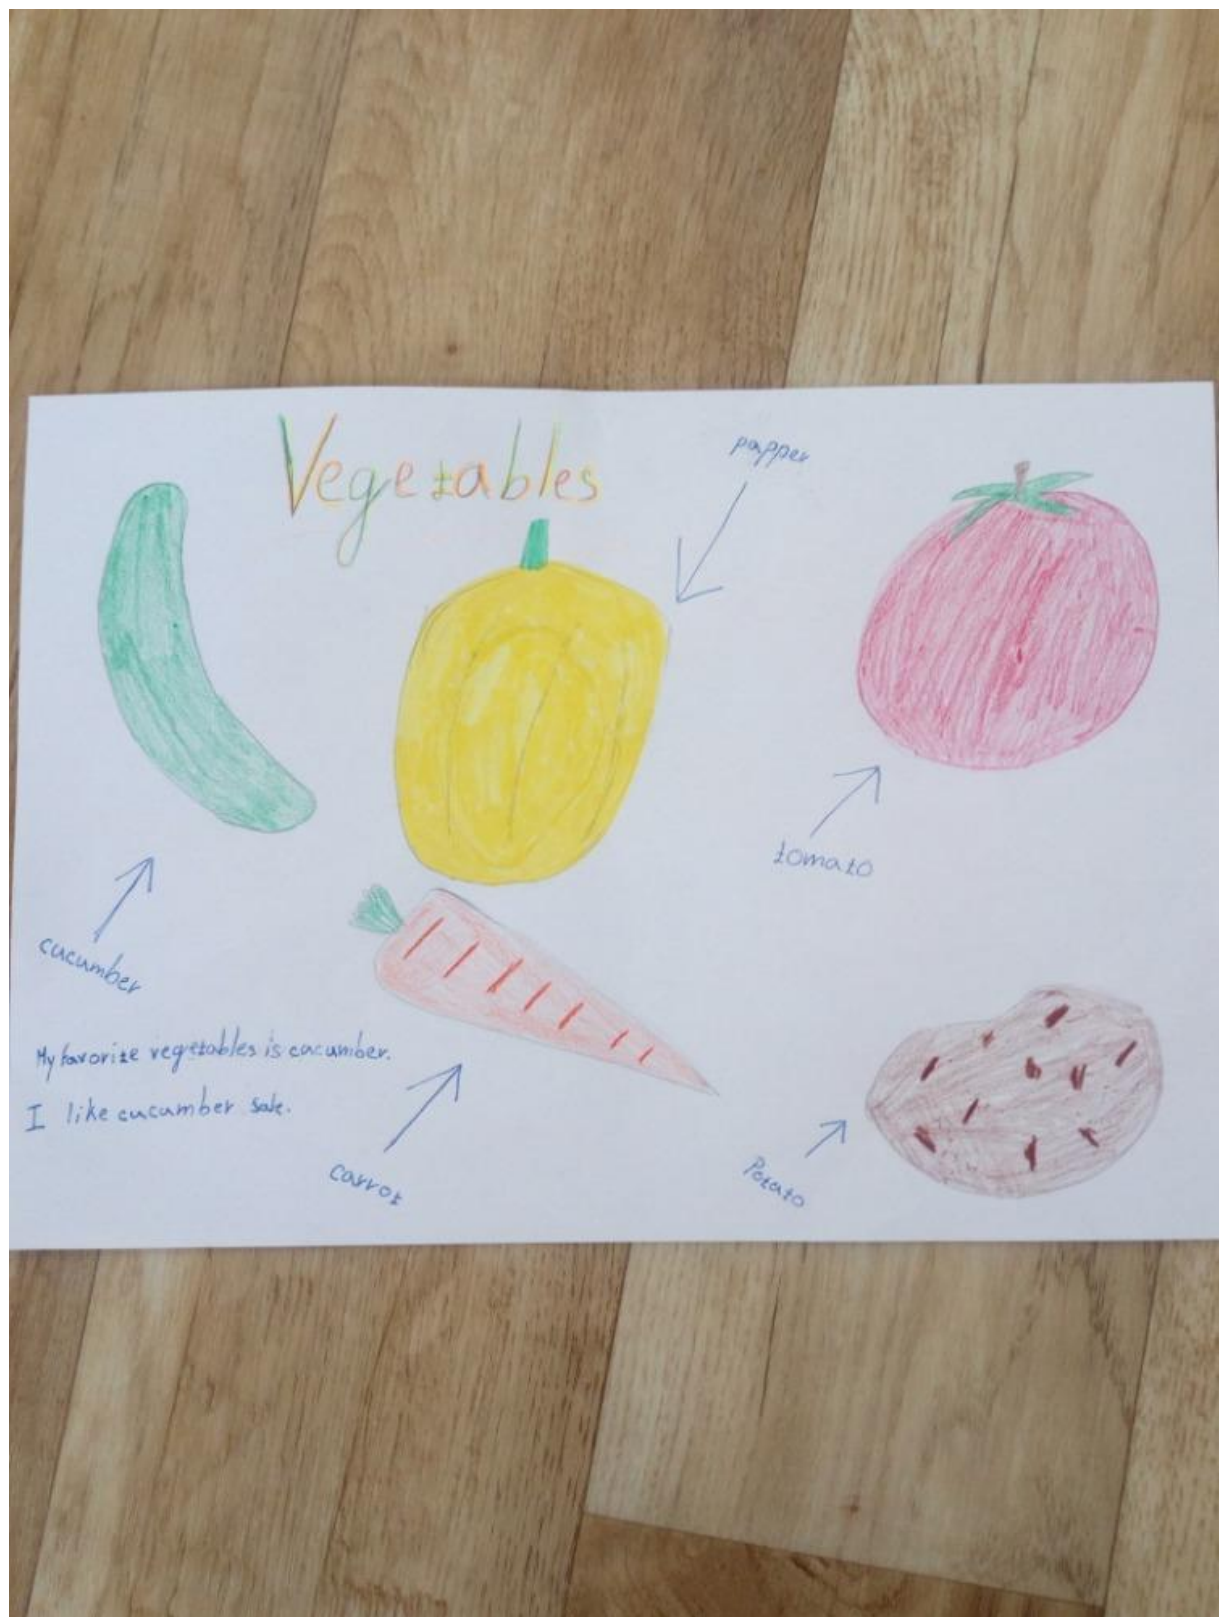 Vegetables
papper
tomato
cucumber
My favorite vegetables is cacumber.
I like cucumber
carrot
Potato